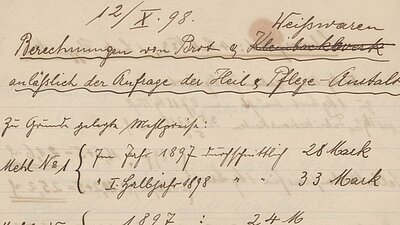 12/X. 98.
Weißwaren
Berechnungen von Brot & Kleinbackwerk
anläßlich der Anfrage der Heil & Pflege-Anstalt
Zu Grunde gelegte Mehlpreise:
Mehl No 1 { Im Jahr 1897 durchschnittlich 28 Mark
" I. Halbjahr 1898 " " 33 Mark
1897 : 24 M